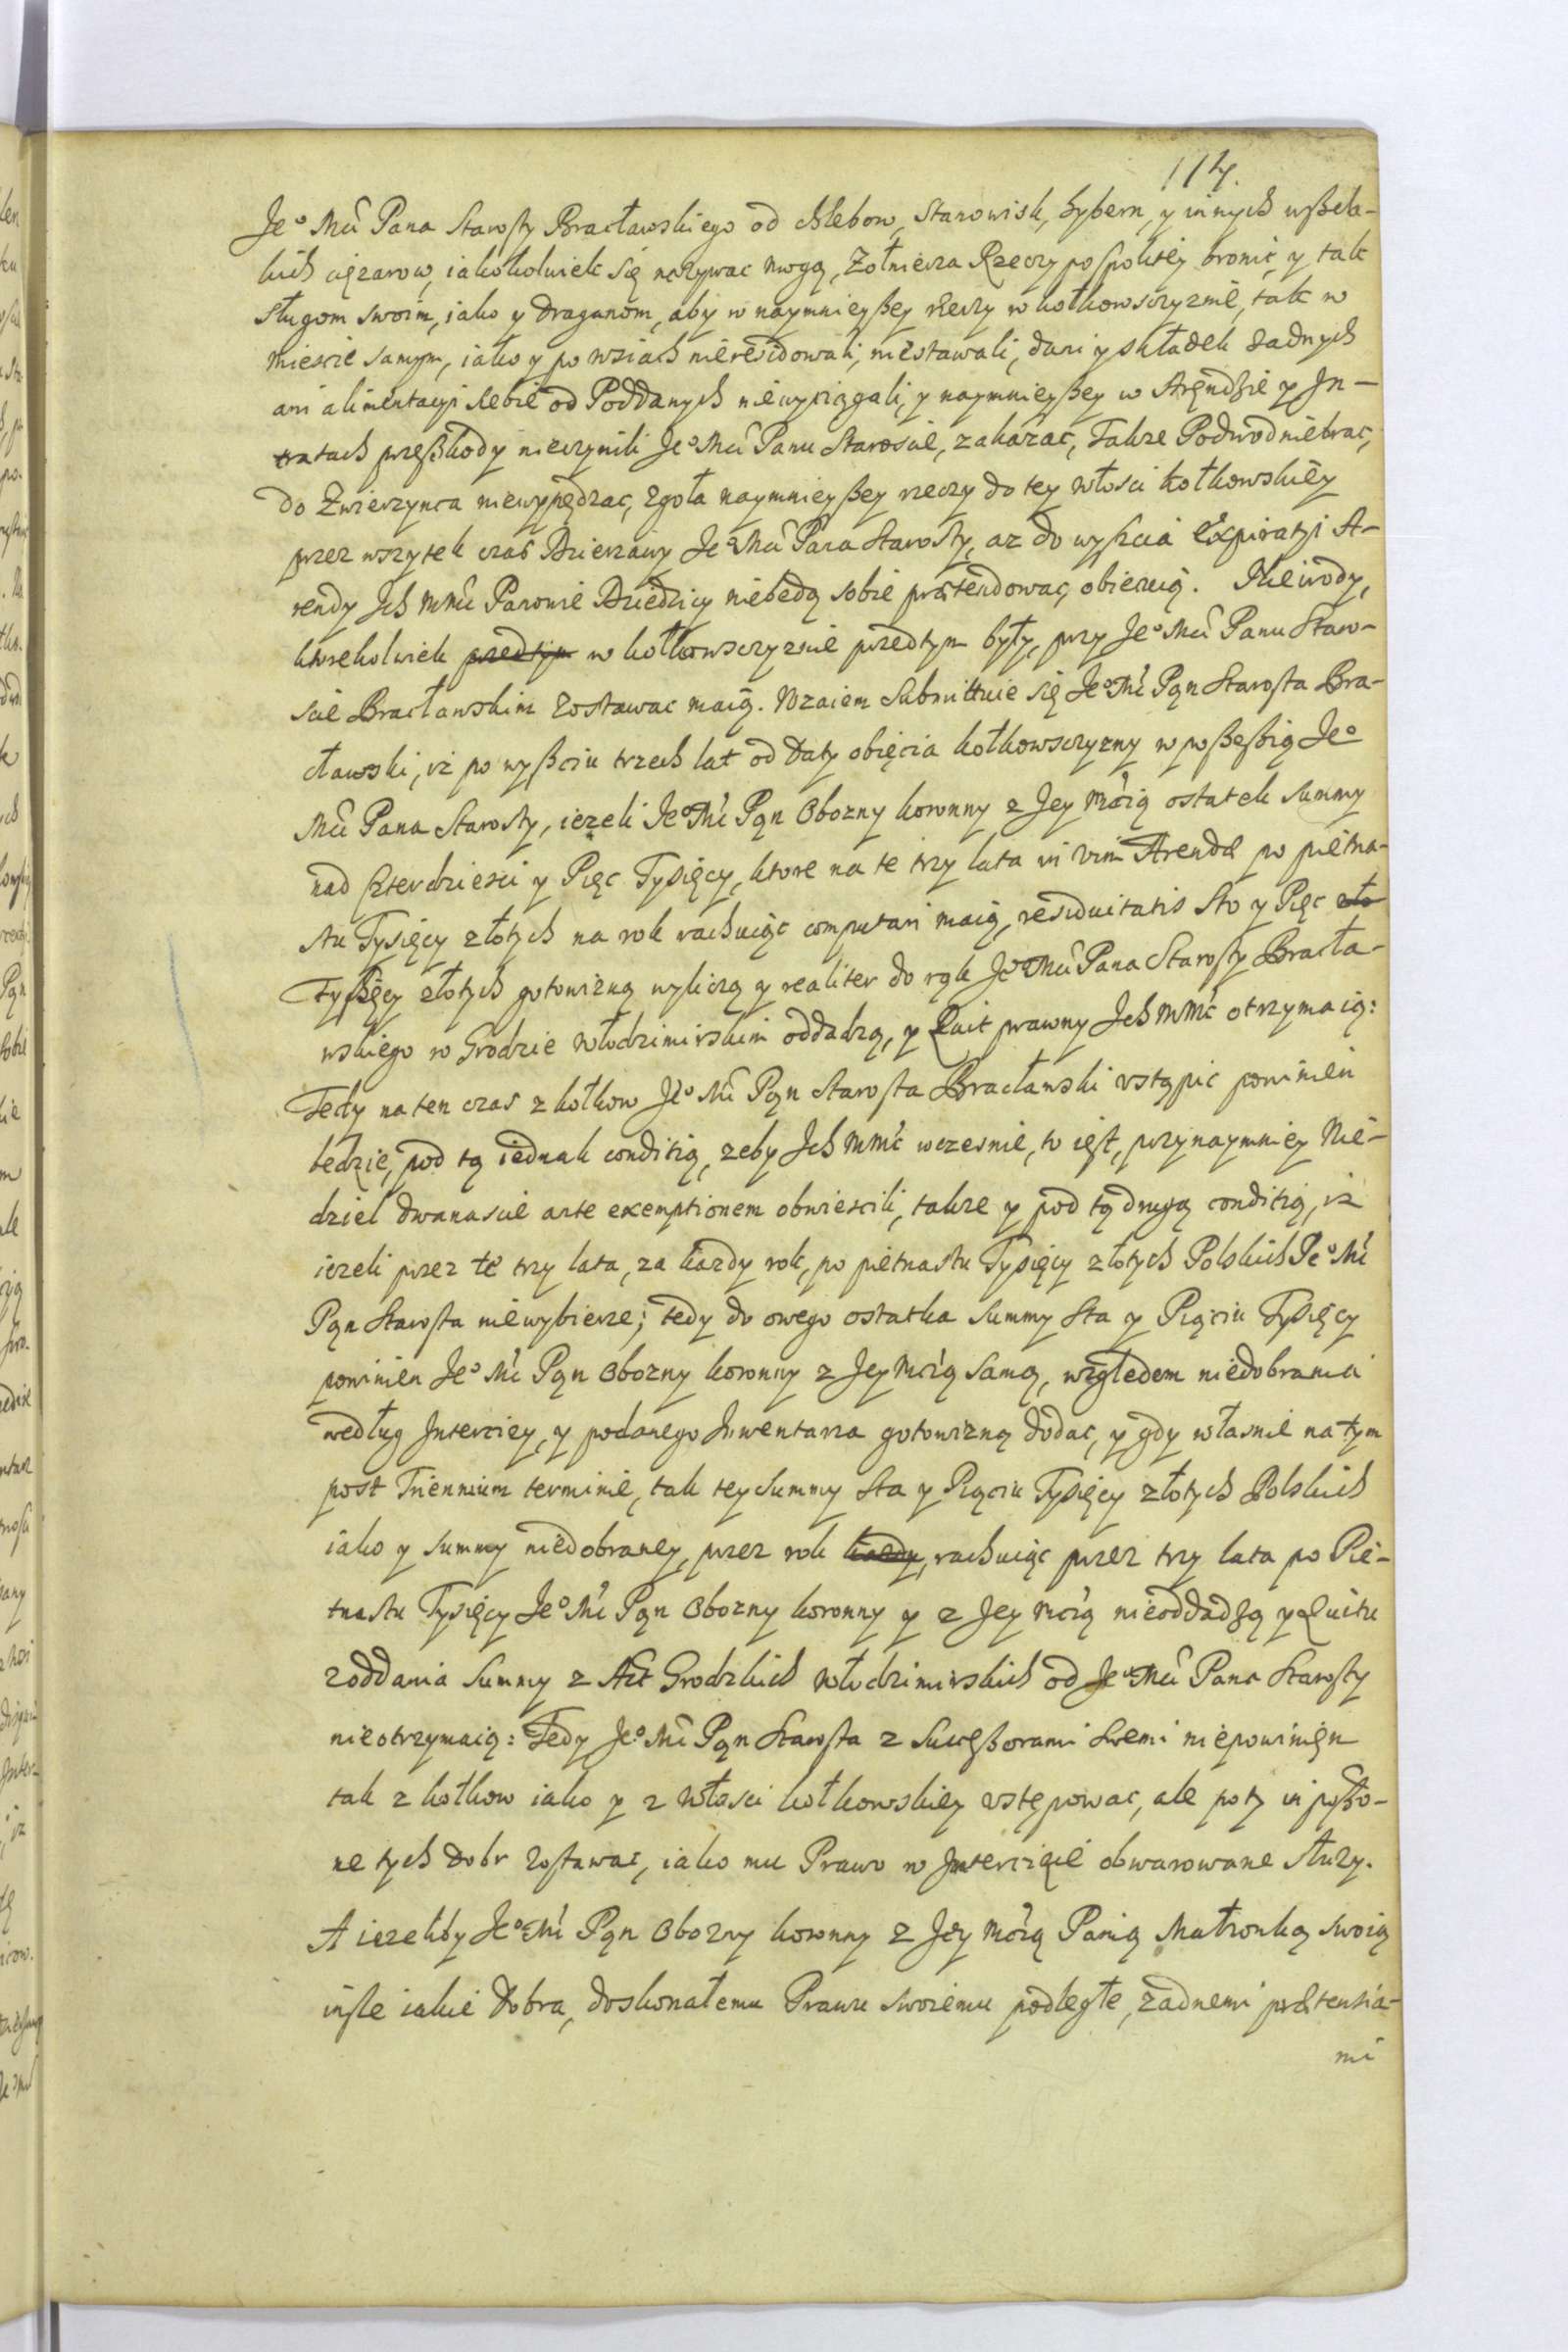 114.
Je° Mći Pana Starosty Bracławskiego od chlebow, Stanowisk, hybern, y innych wszela-
kich cięzarow, iakożkolwiek się nazywac mogą, Zołnierza Rzeczypospolitey bronić, y tak
sługom swoim, iako y draganom, aby w naymnieyßey rzeczy w kołkowszczyznie, tak w
miescie samym, iako y po wsiach nieresidowali, niestawali, dani y składek zadnych
ani alimentacyi sobie od Poddanych niewyciągali, y naymnieyßey w Aręndzie y In-
tratach przeßkody nieczynili Je° Mći Panu Staroscie, zakazac, Takze Podwod niebrac,
do Zwierzynca niewypędzac, zgoła naymnieyßey rzeczy do tey włosci kołkowskiey
przez wszytek czas Dzierzawy Je° Mći Pana Starosty, az do wyscia Expiratyi A-
rendy Ich MMći Panowie Dziedzicy niebędą sobie prætendowac, obiecuią. Niewody,
ktorekolwiek przedtym w kołkowszczyznie przedtym były, przy Je° Mći Panu Staro-
scie Bracławskim zostawac maią. Wzaiem Submittuie się Je° Mć Pąn Starosta Bra-
cławski, iż po wyßciu trzech lat od daty obięcia kołkowszczyzny w poßeßią Je°
Mći Pana Starosty, iezeli Je° Mć Pąn Obozny koronny z Jey Mcią ostatek summy
nad Czterdziesci y Pięc Tysięcy, ktore na te trzy lata in vim Arendæ po piętna-
stu Tysięcy złotych na rok rachuiąc computari maią, residuitatis Sto y Pięc zło
Tyßięcy złotych gotowizną wyliczą y realiter do rąk Je° Mći Pana Starosty Bracła-
wskiego w Grodzie Włodzimirskim oddadzą, y Quit prawny Ich MMć otrzymaią:
Tedy na ten czas z kołkow Je° Mć Pąn Starosta Bracławski vstąpic powinien
bedzie, pod tą iednak conditią, zeby Ich MMć wczesnie, to iest, przynaymniey Nie-
dziel dwanascie ante exemptionem obwiescili, takze y pod tą drugą conditią, iz
iezeli przez te trzy lata, za kazdy rok, po piętnastu Tysięcy złotych Polskich Je° Mć
Pąn Starosta niewybierze; tedy do owego ostatka Summy Sta y Pięciu Tysięcy
powinien Je° Mć Pąn Obozny koronny z Jey Mcią samą, względem niedobrania
według Intercizy, y podanego Inwentarza gotowizną dodac, y gdy własnie na tym
post Triennium terminie, tak tey Summy Sta y Pięciu Tysięcy złotych Polskich
iako y summy niedobraney, przez rok kazdy, rachuiąc przez trzy lata po Pię-
tnastu Tysięcy Je° Mć Pąn Obozny koronny y z Jey Mcią nieoddadzą y Quitu
z oddania Summy z Akt Grodzkich Włodzimirskich od Je° Mći Pana Starosty
nieotrzymaią: Tedy Je° Mć Pąn Starosta z Succeßorami swemi niepowinięn
tak z kołkow iako y z włosci kołkowskiey vstępowac, ale poty in poßeßio-
ne tych dobr zostawac, iako mu Prawo w Intercizie obwarowane słuzy.
A iezeliby Je° Mć Pąn Obozny koronny z Jey Mcią Panią Małzonką swoią
insze iakie dobra, doskonałemu Prawu swoiemu podległe, zadnemi prætensia-
mi